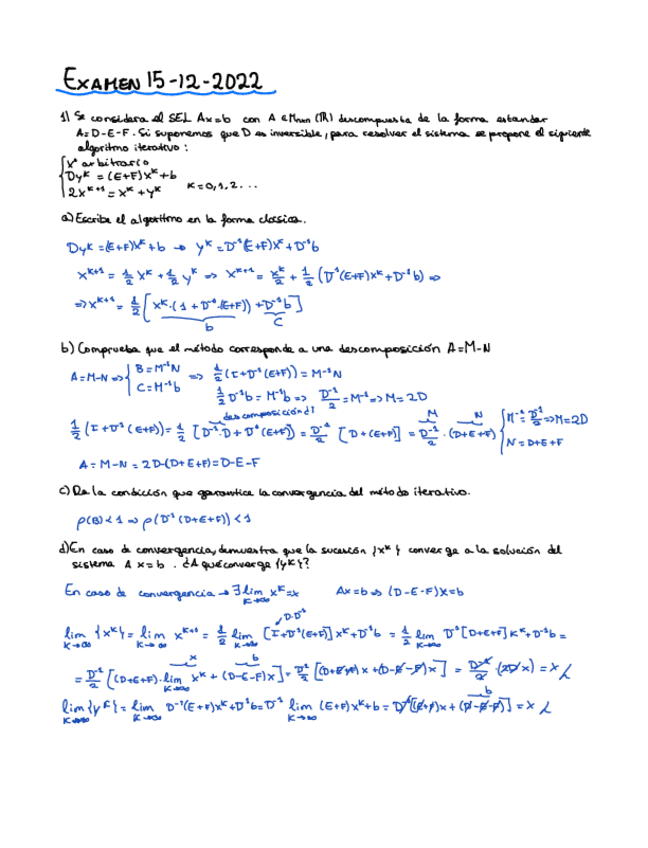 EXAMEN 15-12-2022
1) Se considera el SEL Ax=b con A ∈ Mnxn (ℝ) descompuesta de la forma estandar
A=D-E-F. Si suponemos que D es inversible, para resolver el sistema se propone el siguiente
algoritmo iterativo:
{ x⁰ arbitrario
Dyᴷ = (E+F)xᴷ+b
2xᴷ⁺¹ = xᴷ + yᴷ K=0,1,2...
a) Escribe el algoritmo en la forma clasica.
Dyᴷ = (E+F)xᴷ+b → yᴷ = D⁻¹(E+F)xᴷ + D⁻¹b
xᴷ⁺¹ = 1/2 xᴷ + 1/2 yᴷ => xᴷ⁺¹ = xᴷ/2 + 1/2 (D⁻¹(E+F)xᴷ + D⁻¹b) =>
=> xᴷ⁺¹ = 1/2 [xᴷ·(1 + D⁻¹·(E+F)) + D⁻¹b]
b C
b) Comprueba que el método corresponde a una descomposición A=M-N
A=M-N => { B=M⁻¹N C=M⁻¹b => 1/2 (I+D⁻¹(E+F)) = M⁻¹N
1/2 D⁻¹b = M⁻¹b => D⁻¹/2 = M⁻¹ => M = 2D
descomposición d I
1/2 (I + D⁻¹(E+F)) = 1/2 [D⁻¹·D + D⁻¹(E+F)] = D⁻¹/2 [D+(E+F)] = D⁻¹/2 · (D+E+F) { M⁻¹ = D⁻¹/2 => M=2D
M N
N = D+E+F
A = M-N = 2D-(D+E+F) = D-E-F
c) Da la condición que garantice la convergencia del método iterativo.
ρ(B) < 1 => ρ(D⁻¹(D+E+F)) < 1
d) En caso de convergencia, demuestra que la sucesión {xᴷ} converge a la solución del
sistema Ax=b. ¿A qué converge {yᴷ}?
En caso de convergencia → ∃ lim xᴷ = x K→∞ Ax=b => (D-E-F)x=b
D·D⁻¹
lim {xᴷ} = lim xᴷ⁺¹ = 1/2 lim [I+D⁻¹(E+F)] xᴷ + D⁻¹b = 1/2 lim D⁻¹[D+E+F] xᴷ + D⁻¹b =
K→∞ K→∞ K→∞ K→∞
x b
= D⁻¹/2 [(D+E+F)·lim xᴷ + (D-E-F)x] = D⁻¹/2 [(D+E+F)x + (D-E-F)x] = D⁻¹/2 · (2Dx) = x
K→∞
b
lim {yᴷ} = lim D⁻¹(E+F)xᴷ + D⁻¹b = D⁻¹ lim (E+F)xᴷ + b = D⁻¹[(E+F)x + (D-E-F)] = x
K→∞ K→∞ K→∞